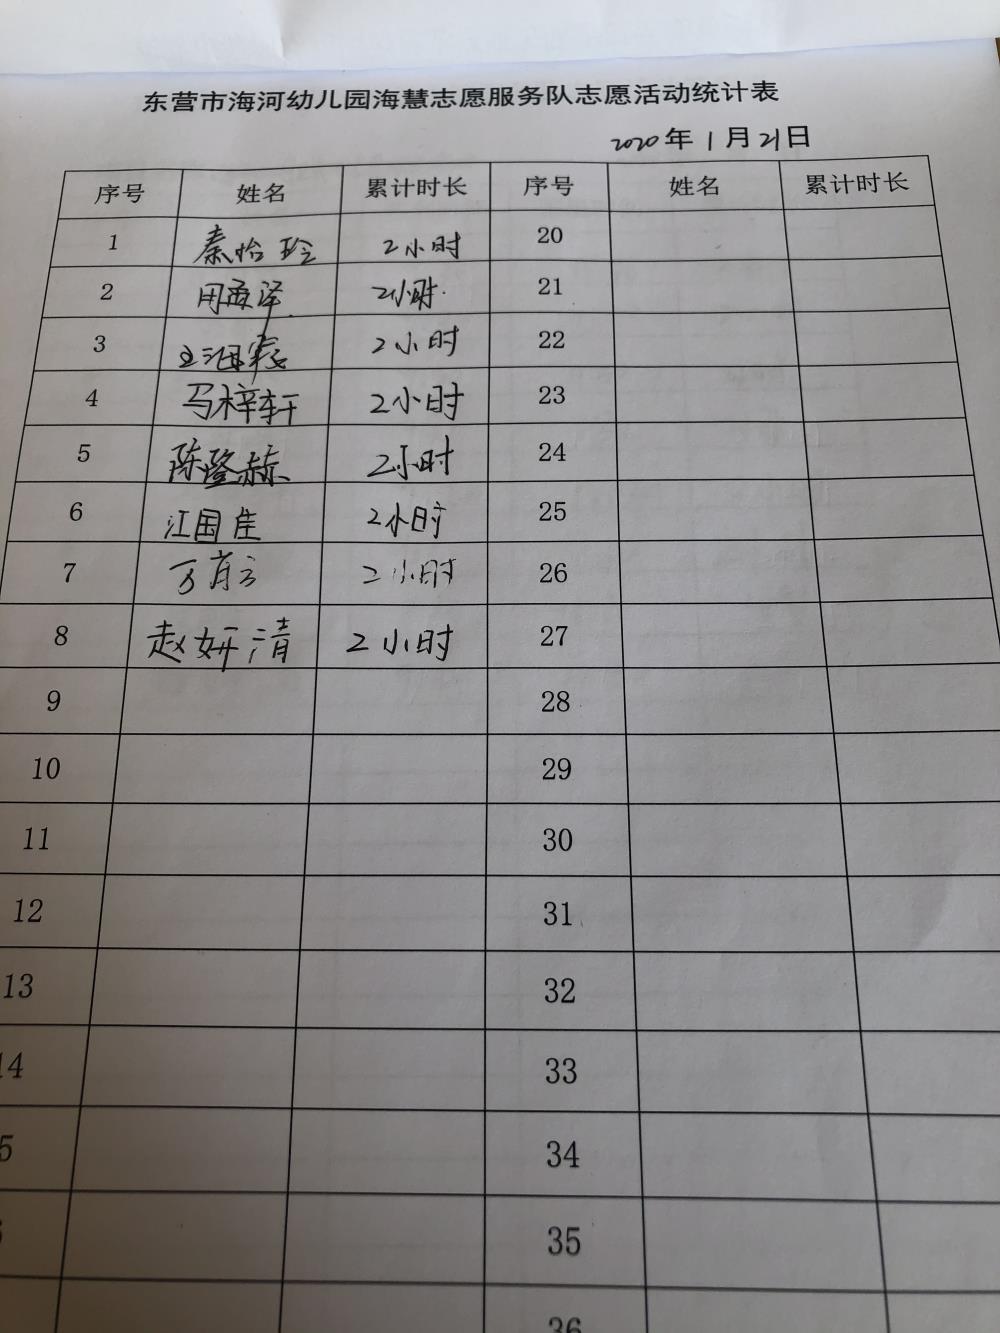 东营市海河幼儿园海慧志愿服务队志愿活动统计表
2020年1月21日
序号 姓名 累计时长 序号 姓名 累计时长
1 秦怡玲 2小时 20
2 2小时 21
3 2小时 22
4 马梓轩 2小时 23
5 陈隆赫 2小时 24
6 江国佳 2小时 25
7 2小时 26
8 赵妍清 2小时 27
9 28
10 29
11 30
12 31
13 32
14 33
5 34
35
36